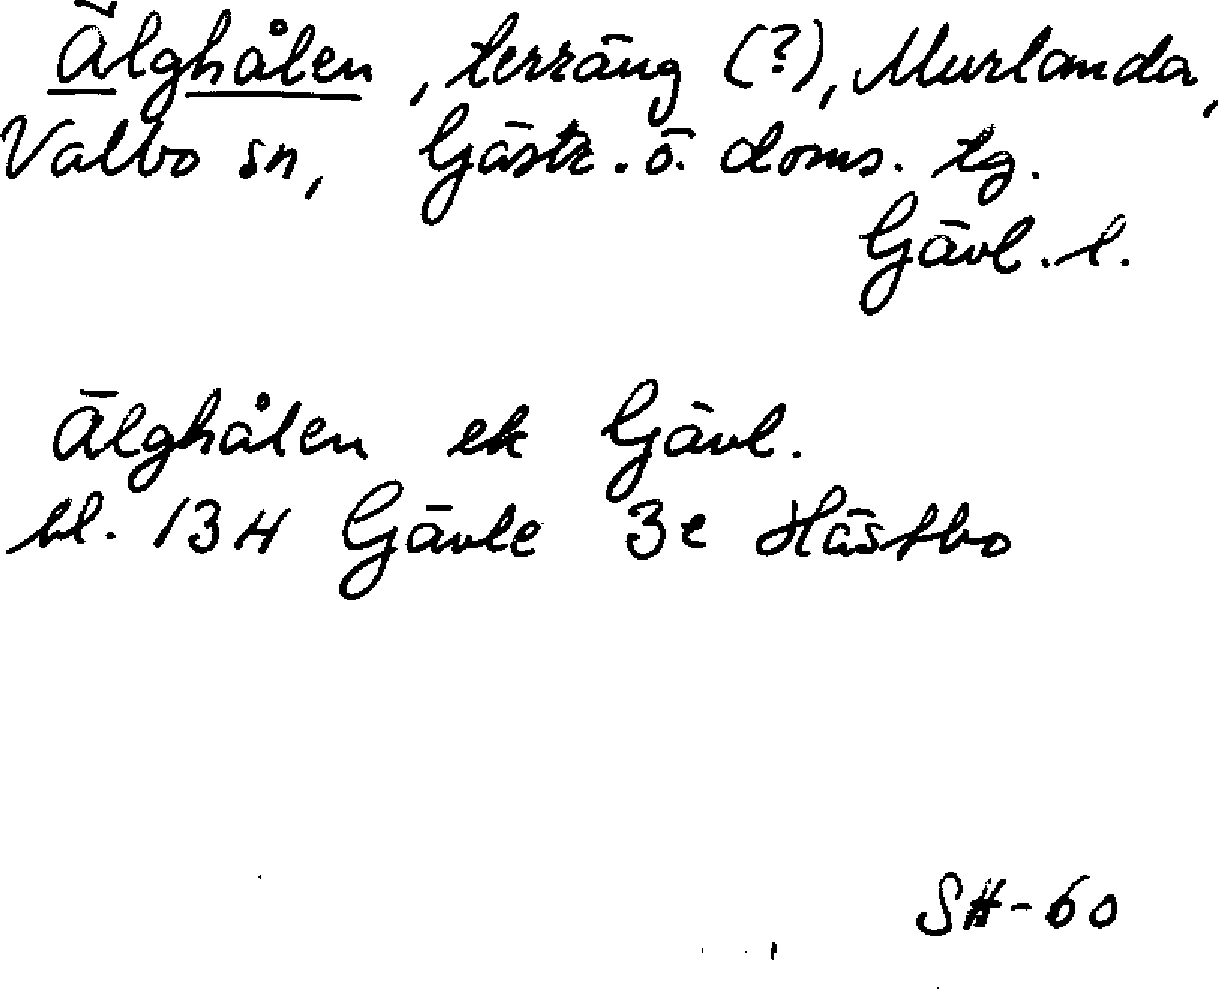 Älghålen, terräng (?), Murlanda,
Valbo sn, Gästr. ö. doms. tg.
Gävl. l.
Älghålen ek Gävl.
bl. 13H Gävle 3e Hästbo
SH-60